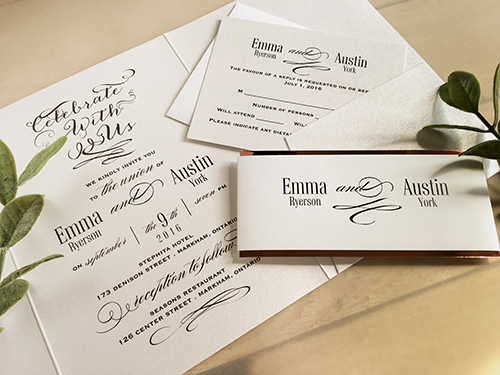 Celebrate
With
Us
WE KINDLY INVITE YOU
to the union of
Emma and Austin
Ryerson York
on september the 9th seven PM
2016
STEPHITA HOTEL
173 DENISON STREET - MARKHAM, ONTARIO
reception to follow
SEASONS RESTAURANT
126 CENTER STREET - MARKHAM, ONTARIO
Emma and Austin
Ryerson York
THE FAVOUR OF A REPLY IS REQUESTED ON OR
JULY 1, 2016
M
NUMBER OF PERSONS
WILL ATTEND WILL
PLEASE INDICATE ANY
Emma and Austin
Ryerson York